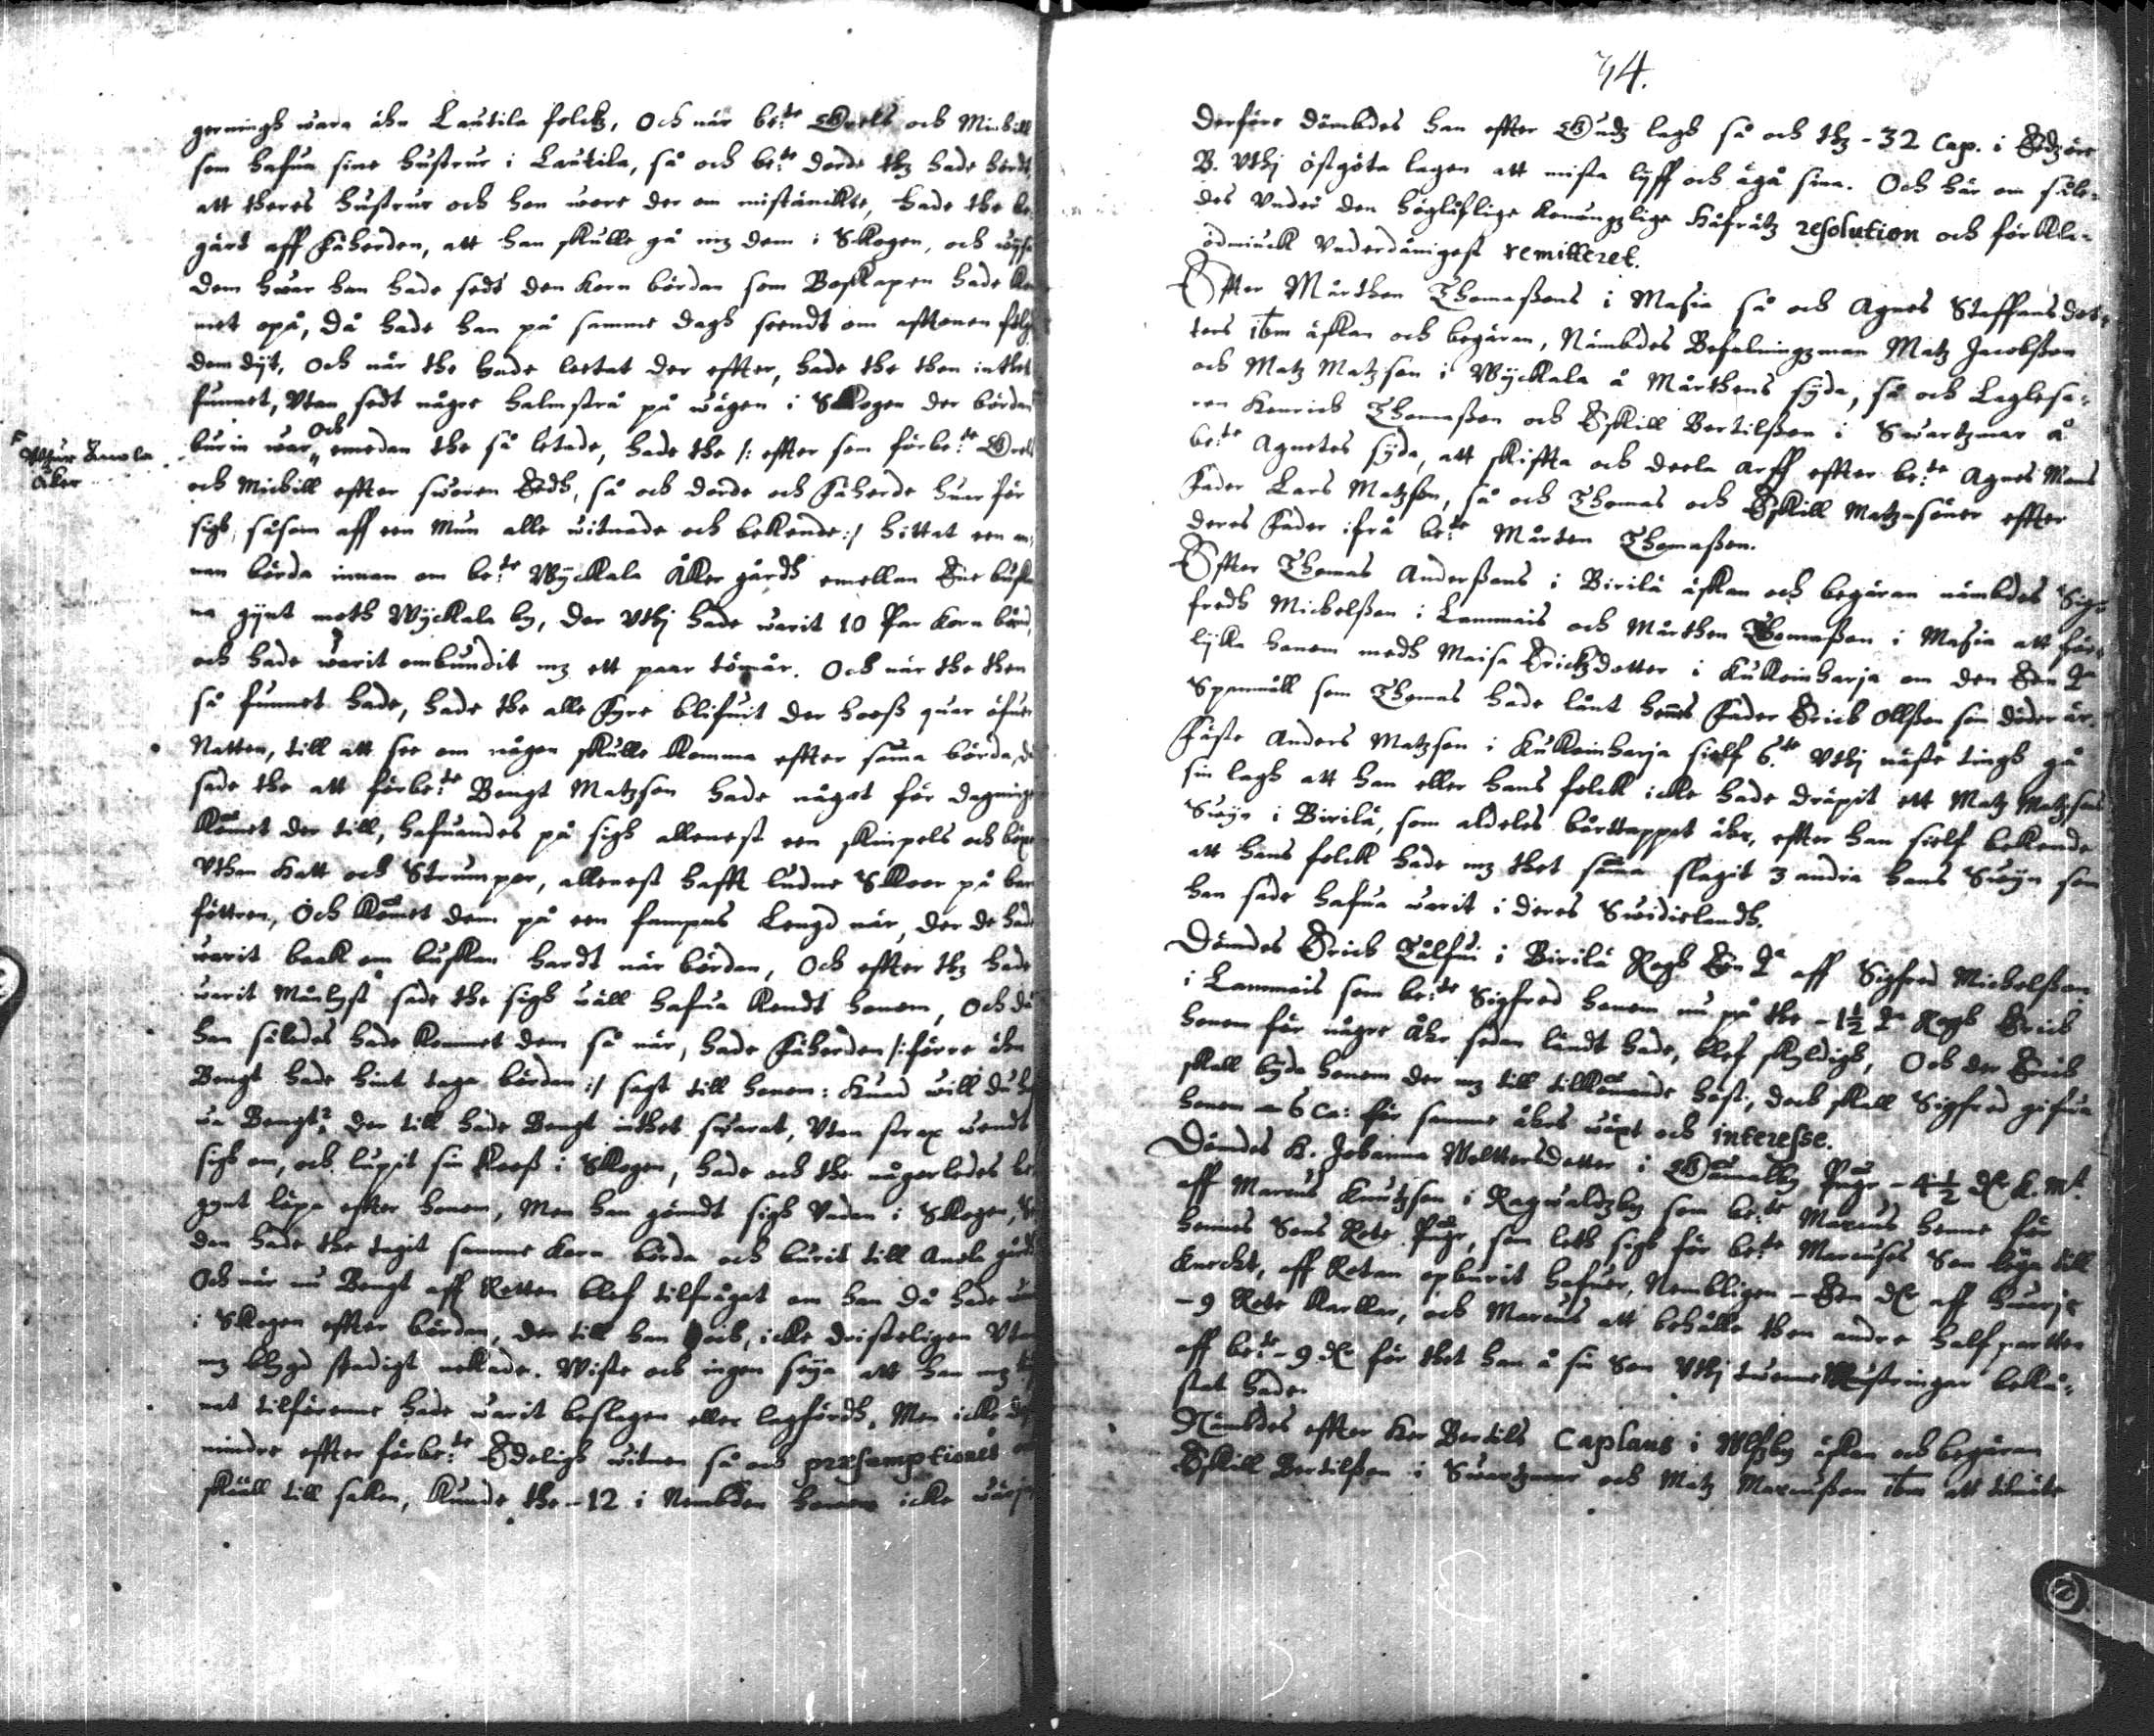 gerningh wara ähn Lautila folck, Och när be:te Grels och Michill
som hafua sine hustrur i Lautila, så och be:te dorde thz hade hördt
att theres hustrur och hon wore der om mistänckte, hade the be-
gärt aff Fäherden, att han skulle gå mz dem i Skogen, och wysa
dem hwar han hade sedt den korn bördan som Boskapen hade kom
met opå, då hade han på samme dagh seendt om afftonen fölg
dem dyt, Och när the hade leetat der effter, hade the then inthet
funnet, Vtan sedt någre halmstrå på wägen i Skogen der bördan
burin war, Och emedan the så letade, hade the /: effter som förbe:te Grels
Vthur Anola
åker
och Michill effter sworen Eedh, så och dorde och Fäherde huar för
sigh, såsom aff een Mun alle witnade och bekende :/ hittat een an-
nan börda innan om be:te Wyckala Åker gärdh emellan Ene buska
na gynt moth Wyckala by, der Vthj hade warit 10 Par korn bånd,
och hade warit ombundit mz ett paar tömår. Och när the then
så funnet hade, hade the alle Fyre blifuit der hooss quar öfuer
Natten, till att see om någon skulle komma effter sama börda, då
sade the att förbe:te Bengt Matzson hade något för dagninge
komet der till, hafuandes på sigh allenest een skinpels och böxe
Vthan Hatt och Strumper, allenest hafft ludne Skoor på bare
föttren, Och komet dem på een fampns Lengd när, der de hade
warit baak om buskan hardt när bördan, Och effter thz hade
warit Månlyst sade the sigh wäll hafua kendt honom, Och då
han således hade kommet dem så när, hade Fäherden /: förre ähn
Bengt hade hint taga bördan :/ sagt till honom: Huad will du haf
ua Bengt? der till hade Bengt inthet swarat, Vtan strax wendt
sigh om, och lupit sin koos i Skogen, hade och the någorledes be-
gynt löpa effter honom, Men han gömdt sigh Vndan i Skogen, Se
dan hade the tagit samme korn börda och burit till Anola gårdh
Och när nu Bengt aff Retten blef tilfrågat om han då hade
i Skogen effter bördan, der till han och, icke dristeligen Vtan
mz blygd stadigt nekade. Wiste och ingen seya att han mz
nat tilförenne hade warit beslagen eller lagfördh, Men icke des
mindre effter förbe:te Edeligh witnen så och præsumptiones och
skiäll till saken, kunde the - 12 i Nembden honom icke wäria
74.
Derföre dömbdes han effter Gudz lagh så och thz - 32 Cap. i Edzöre
B. Vthj östgöta lagen att mista lyff och ägå sina. Och här om såle-
des Vnder den höglåflige Konungzlige Håfrätz resolution och förkla-
ödmiuck Vnderdånigest remitteret.
Effter Mårthen Thomassons i Masia så och Agnes Staffansdot-
ters ibm äskan och begäran, Nämbdes Befalningzman Matz Jacobsson
och Matz Matzson i Wyckala å Mårthens syda, så och Laglesa-
ren Henrich Thomasson och Eskill Bertilsson i Swartzmar å
be:te Agnetes syda, att skiffta och deela Arff effter be:te Agnes Mans
Fader Lars Matzson, så och Thomas och Eskill Matz-söner effter
deres Fader ifrå be:te Mårten Thomasson.
Effter Thomas Anderssons i Birilä äskan och begäran nämbdes Sig-
fredh Michelsson i Lammais och Mårthen Thomasson i Masia att för-
lycka honom medh Maisa Erichzdotter i Kukoinharja om den Een T:a
Spanmåll som Thomas hade länt hennes Fader Erich Ollsson som döder är.
Fäste Anders Matzson i Kukoinharja sielf 6:te Vthj näste tingh gå
sin lagh att han eller hans folck icke hade dräpit ett Matz Matzsons
Swyn i Birilä, som aldeles bårttappat ähr, effter han sielf bekende
att hans folck hade mz thet sama slagit 3 andra hans Swyn som
han sade hafua warit i deres Swidielandh.
Dömdes Erich Tålfui i Birilä Rogh Een T:a aff Sigfred Michelsson
i Lammais som be:te Sigfred honom nu på the - 1½ T:a Rogh Erich
honom för någre åhr sedan ländt hade, blef skyldigh, Och der Erich
skall byda honom der mz till tilkomande höst, doch skall Sigfred gifua
honom - 6 Ca: för samme åhrs wäxt och interesse.
Dömdes H. Johanna Wolttersdotter i Gamalby Pngr - 4½ Dr K. Mt.
aff Marcus Knutzson i Ragwaldzby som be:te Marcus henne för
hennes Sons Rote Pngr, som leth sigh för be:te Marcuses Son leya till
Knecht, aff Rotan opburit hafuer, Nembligen - Een Dr aff huarje
- 9 Rote Karllar, och Marcus att behålle then andre halfpartten
aff be:te - 9 Dr för thet han å sin Son Vthj twenne Munstringar bekå-
stat hade.
Nämbdes effter Her Bertils Caplans i Wlfsby äskan och begäran
Eskill Bertilsson i Swartzmar och Matz Marcusson ibm att tilmäte